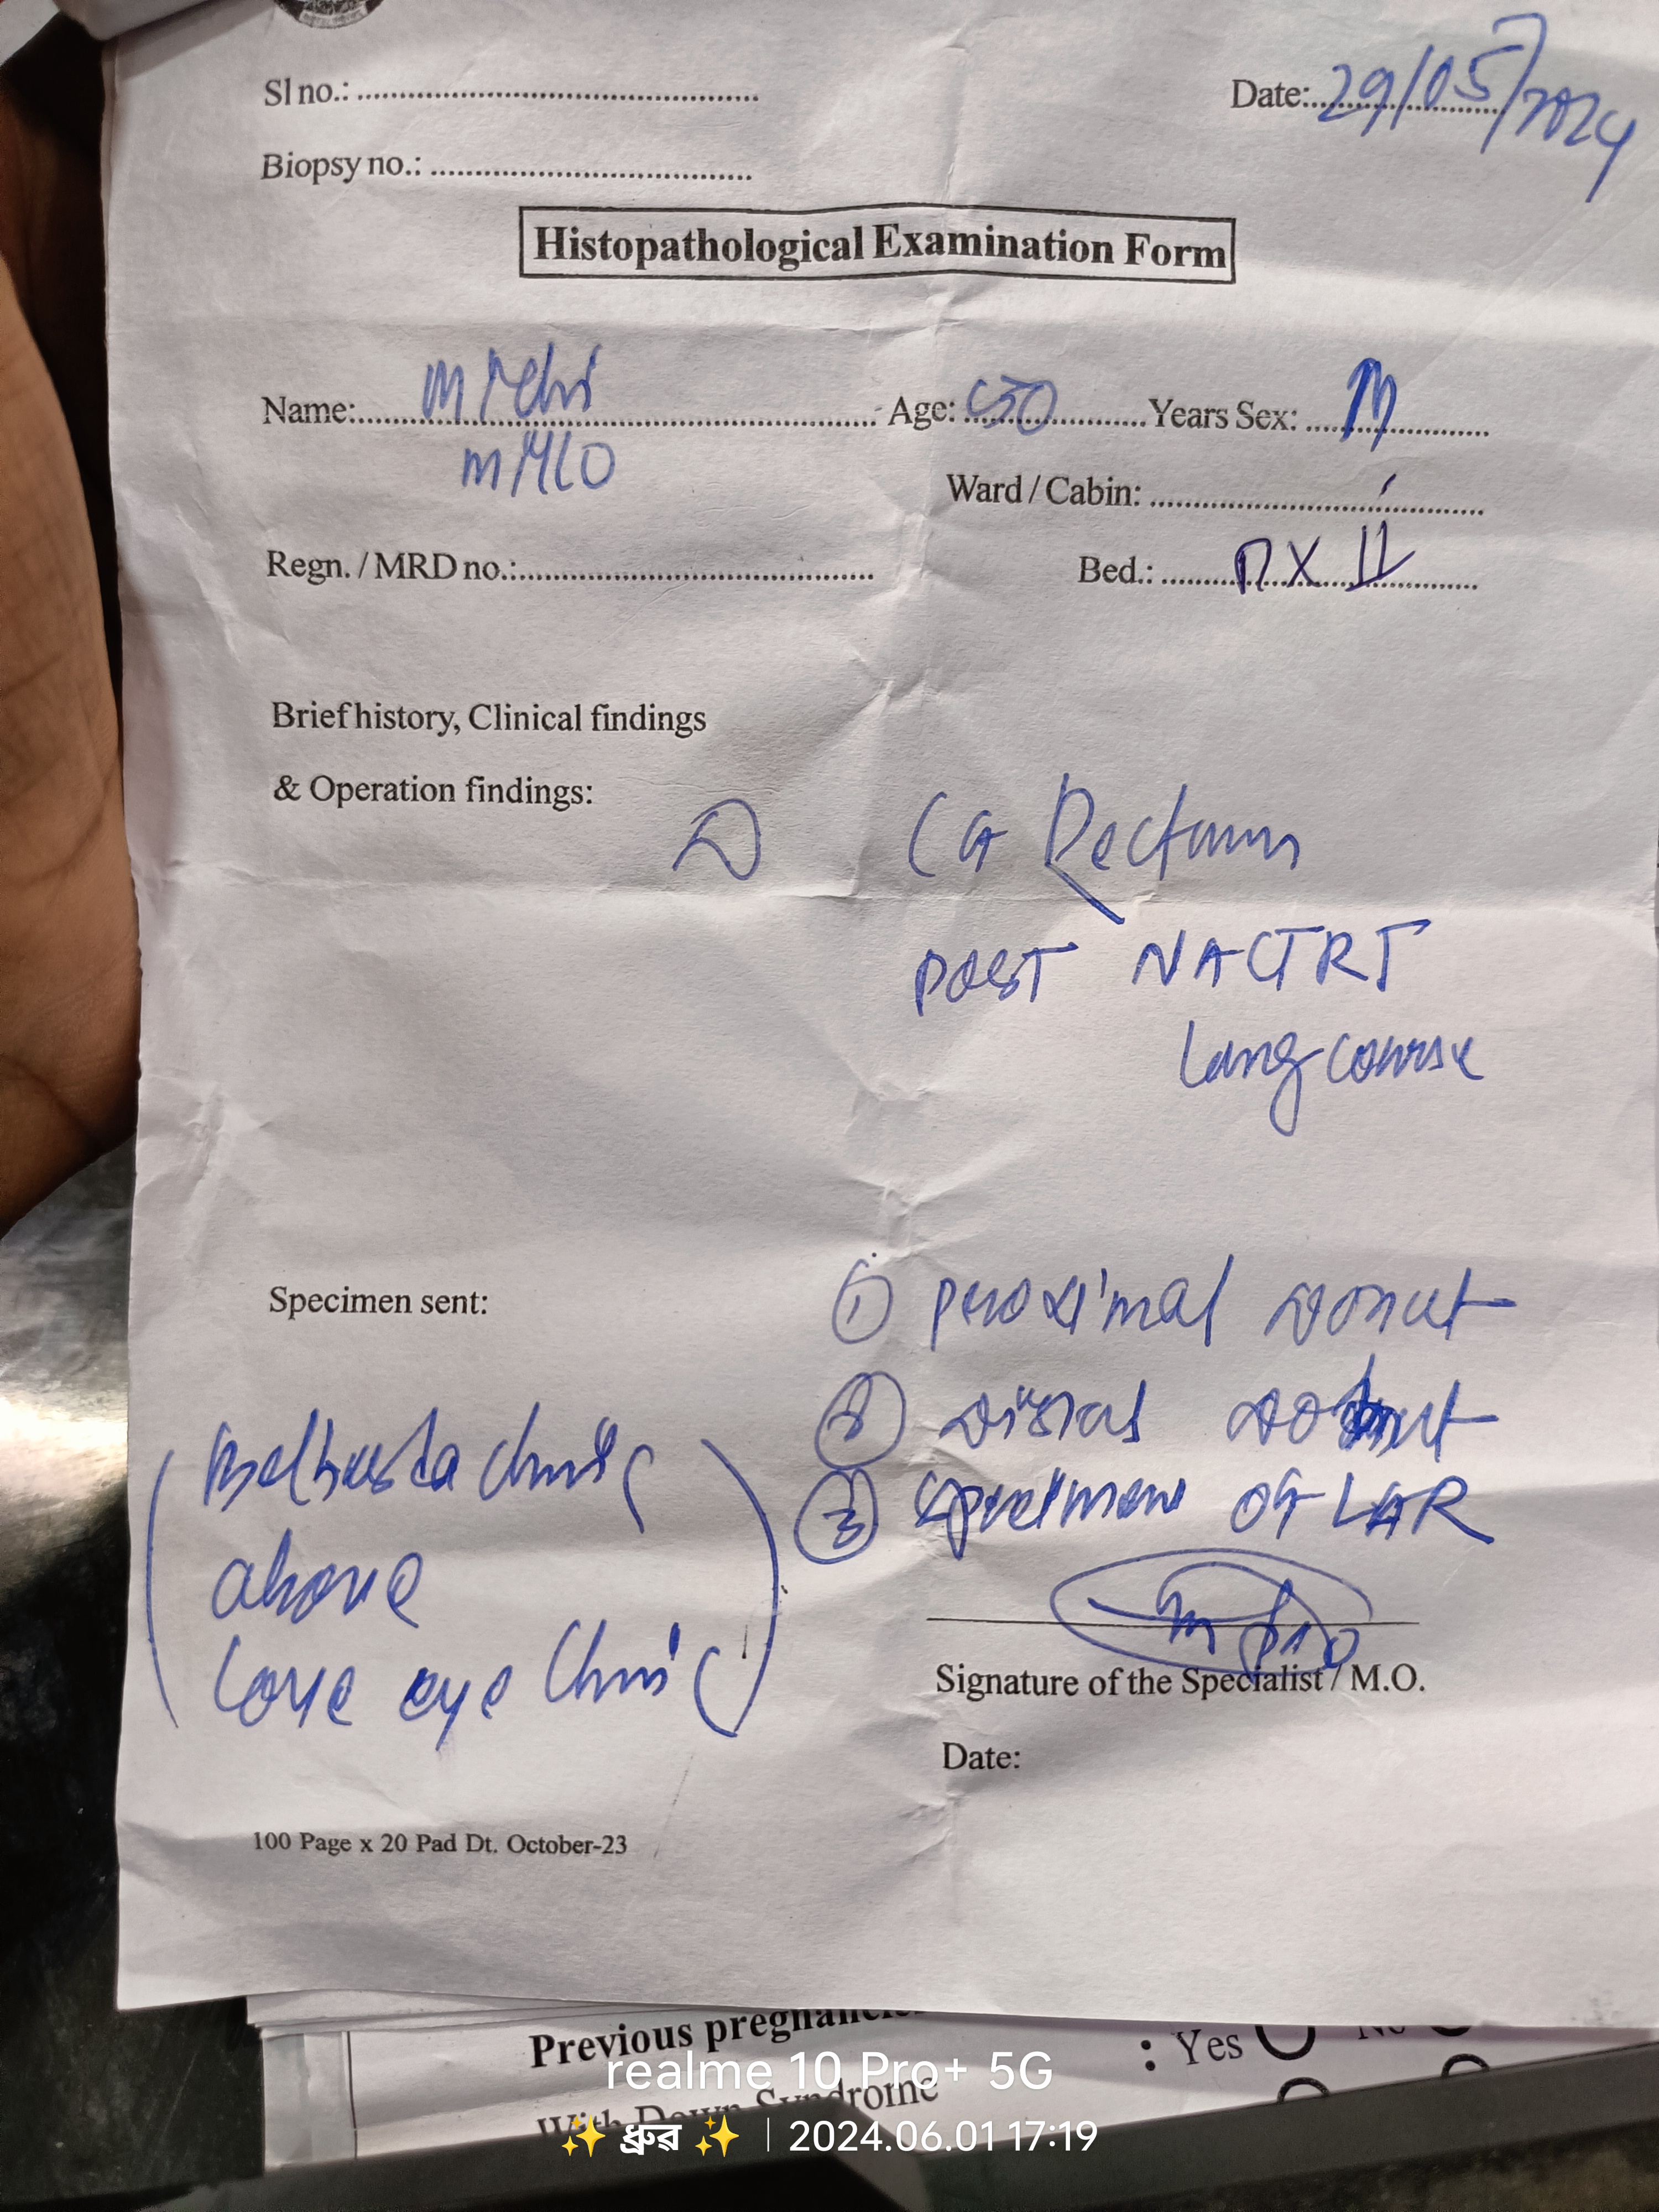 Sl no.: ............ Date: 29/05/2024
Biopsy no.: ............
Histopathological Examination Form
Name: ............ Age: 50 Years Sex: M
Ward / Cabin: ............
Regn. / MRD no.: ............ Bed.:
Brief history, Clinical findings
& Operation findings:
Ca Rectum
POST NACTRT
Long course
Specimen sent:
① proximal donut
② distal donut
③ specimen of LAR
clinic
above
eye clinic
Signature of the Specialist / M.O.
Date:
100 Page x 20 Pad Dt. October-23
Previous : Yes
With Down Syndrome
realme 10 Pro+ 5G
✨ ধ্রুৱ ✨ | 2024.06.01 17:19